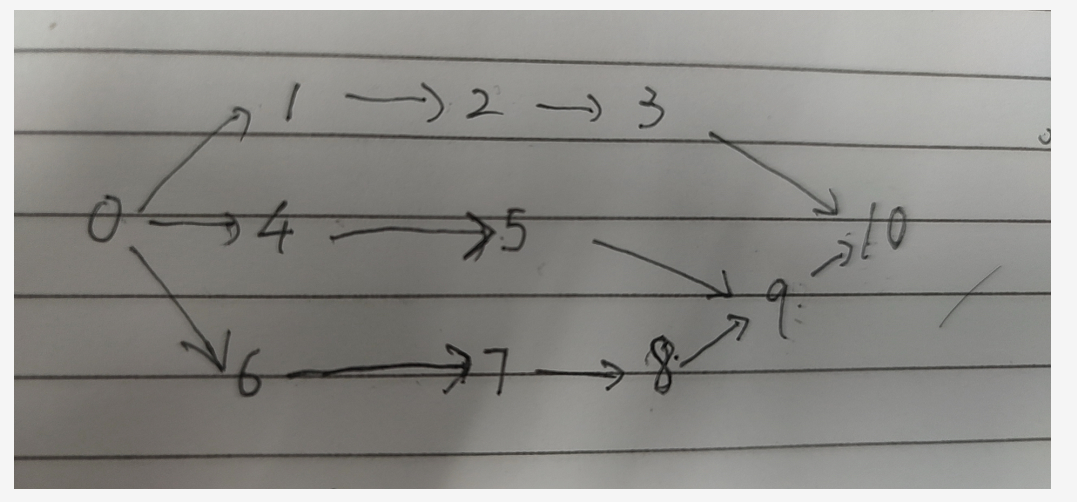 1 → 2 → 3
0 → 4 → 5
10
9
6 → 7 → 8